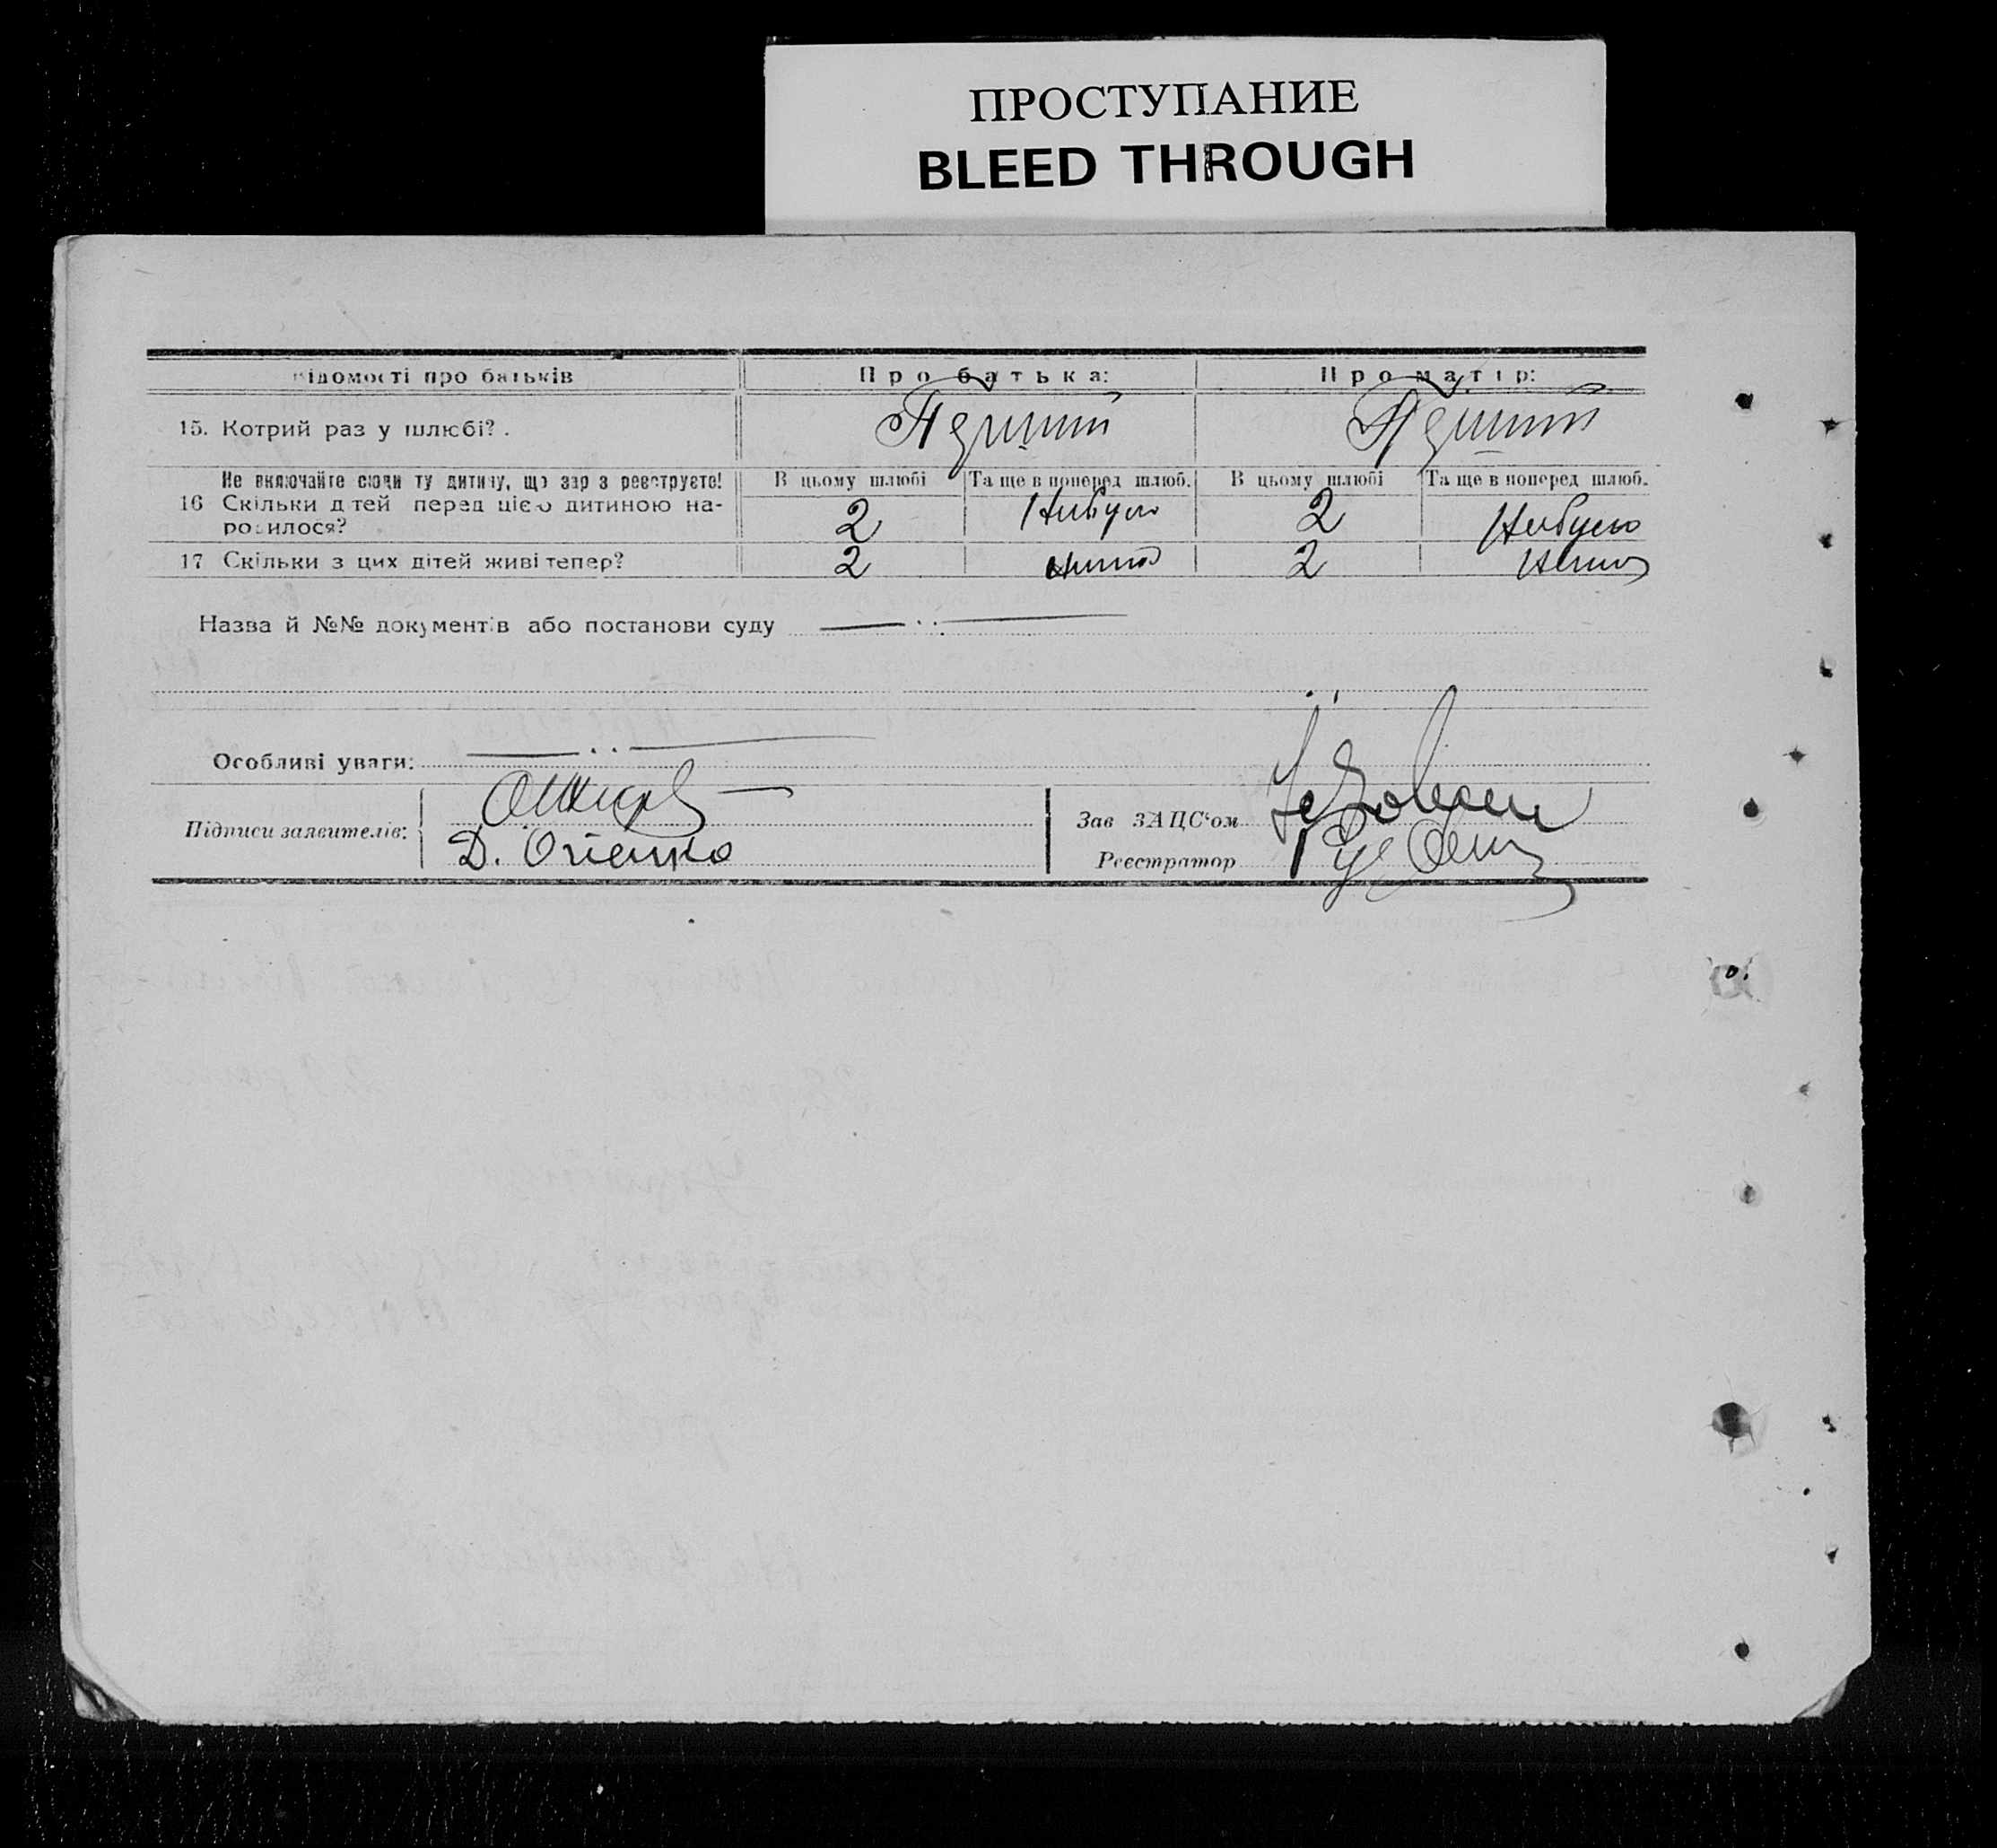 ПРОСТУПАНИЕ
BLEED THROUGH
відомості про батьків Про батька: Про матір:
15. Котрий раз у шлюбі? . Перший Перший
Не включайте сюди ту дитину, що зараз реєструєте! В цьому шлюбі Та ще в поперед шлюб. В цьому шлюбі Та ще в поперед шлюб.
16 Скільки дітей перед цією дитиною на-
родилося? 2 Небуло 2 Небуло
17 Скільки з цих дітей живі тепер? 2 нема 2 нема
Назва й №№ документів або постанови суду
Особливі уваги:
Підписи заявителів:
Д.
Зав ЗАЦС'ом
Реєстратор